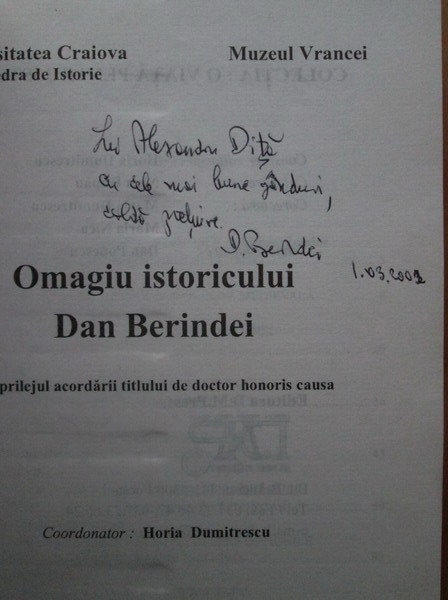 sitatea Craiova Muzeul Vrancei
edra de Istorie
Lui Alexandru Diță
cu cele mai bune gânduri,
caldă prețuire.
D. Berindei
1.03.2002
Omagiu istoricului
Dan Berindei
prilejul acordării titlului de doctor honoris causa
Coordonator : Horia Dumitrescu